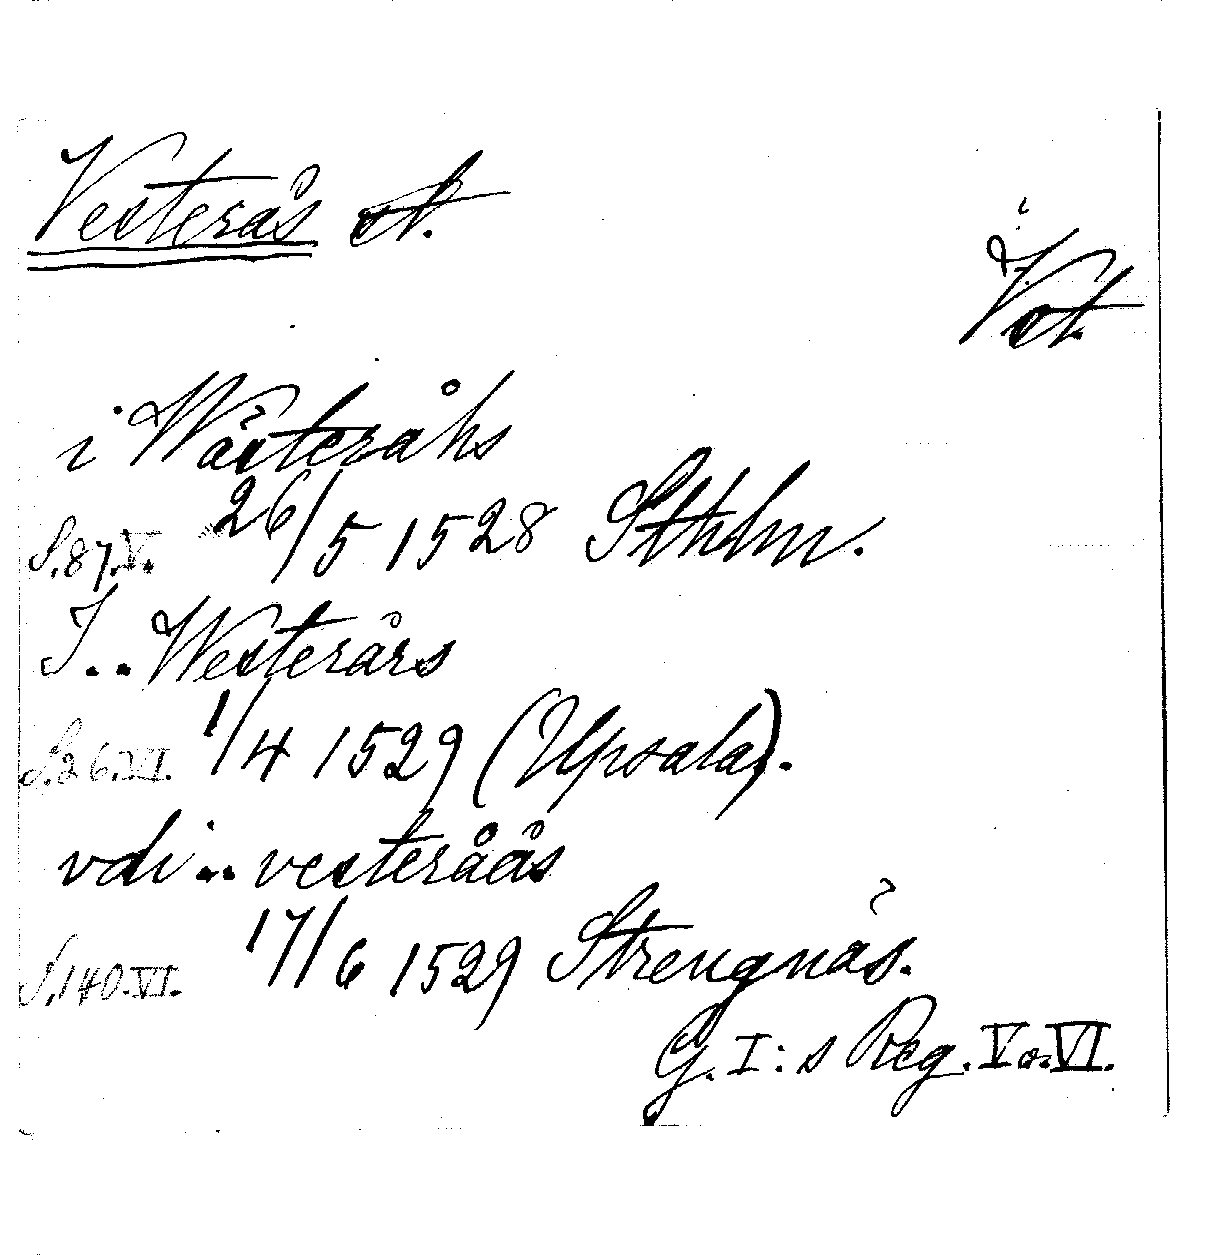 Vesterås st.
Vst.
i Wästeråhs
S.87.V. 26/5 1528 Sthlm.
I.. Westerårs
S.26.VI. 1/4 1529 (Upsala).
vdi .. vesteråås
S.140.VI. 17/6 1529 Strengnäs.
G. I:s Reg. V o. VI.